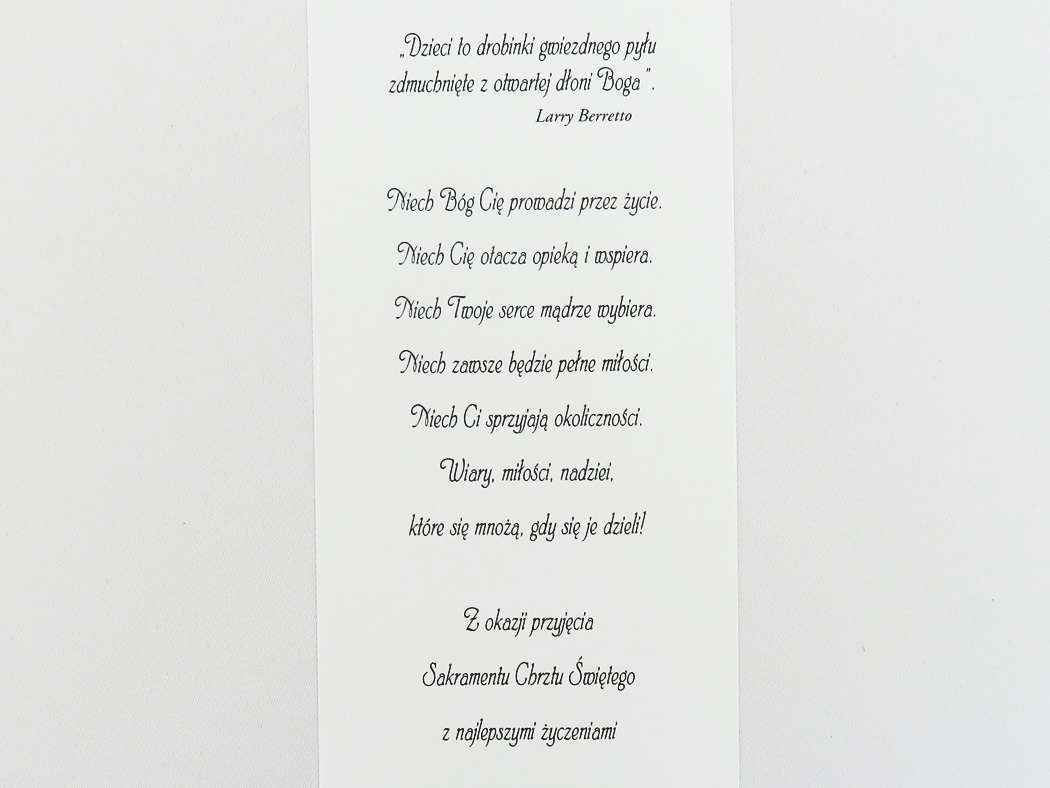 „Dzieci to drobinki gwiezdnego pyłu
zdmuchnięte z otwartej dłoni Boga ”.
Larry Berretto
Niech Bóg Cię prowadzi przez życie.
Niech Cię otacza opieką i wspiera.
Niech Twoje serce mądrze wybiera.
Niech zawsze będzie pełne miłości.
Niech Ci sprzyjają okoliczności.
Wiary, miłości, nadziei,
które się mnożą, gdy się je dzieli!
Z okazji przyjęcia
Sakramentu Chrztu Świętego
z najlepszymi życzeniami